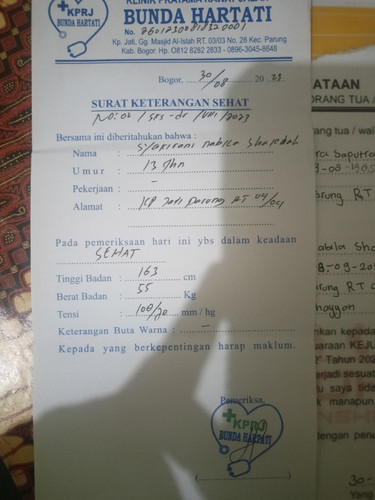 KLINIK PRATAMA RAWAT JALAN
KPRJ
BUNDA HARTATI
BUNDA HARTATI
No.
Kp. Jati, Gg. Masjid Al-Islah RT. 03/03 No. 28 Kec. Parung
Kab. Bogor, Hp. 0812 8282 2833 - 0896-3045-8648
Bogor, 30/08 20 23
SURAT KETERANGAN SEHAT
No: 02 / SKS-dr / VIII / 2023
Bersama ini diberitahukan bahwa :
Nama : Syakirani nabila
Umur : 13 thn
Pekerjaan : -
Alamat : KP Jati Parung RT 04/04
Pada pemeriksaan hari ini ybs dalam keadaan
SEHAT
Tinggi Badan : 163 cm
Berat Badan : 55 Kg
Tensi : 100/70 mm / hg
Keterangan Buta Warna : -
Kepada yang berkepentingan harap maklum.
Pemeriksa,
KPRJ
BUNDA HARTATI
ATAAN
ORANG TUA /
ang tua / wali
Saputra
arung RT
abila Sha
arung RT
hkan kepada
araan KEJU
Tahun 202
erjadi sesuat
u saya tidak
k manapun
lengan penu
30-